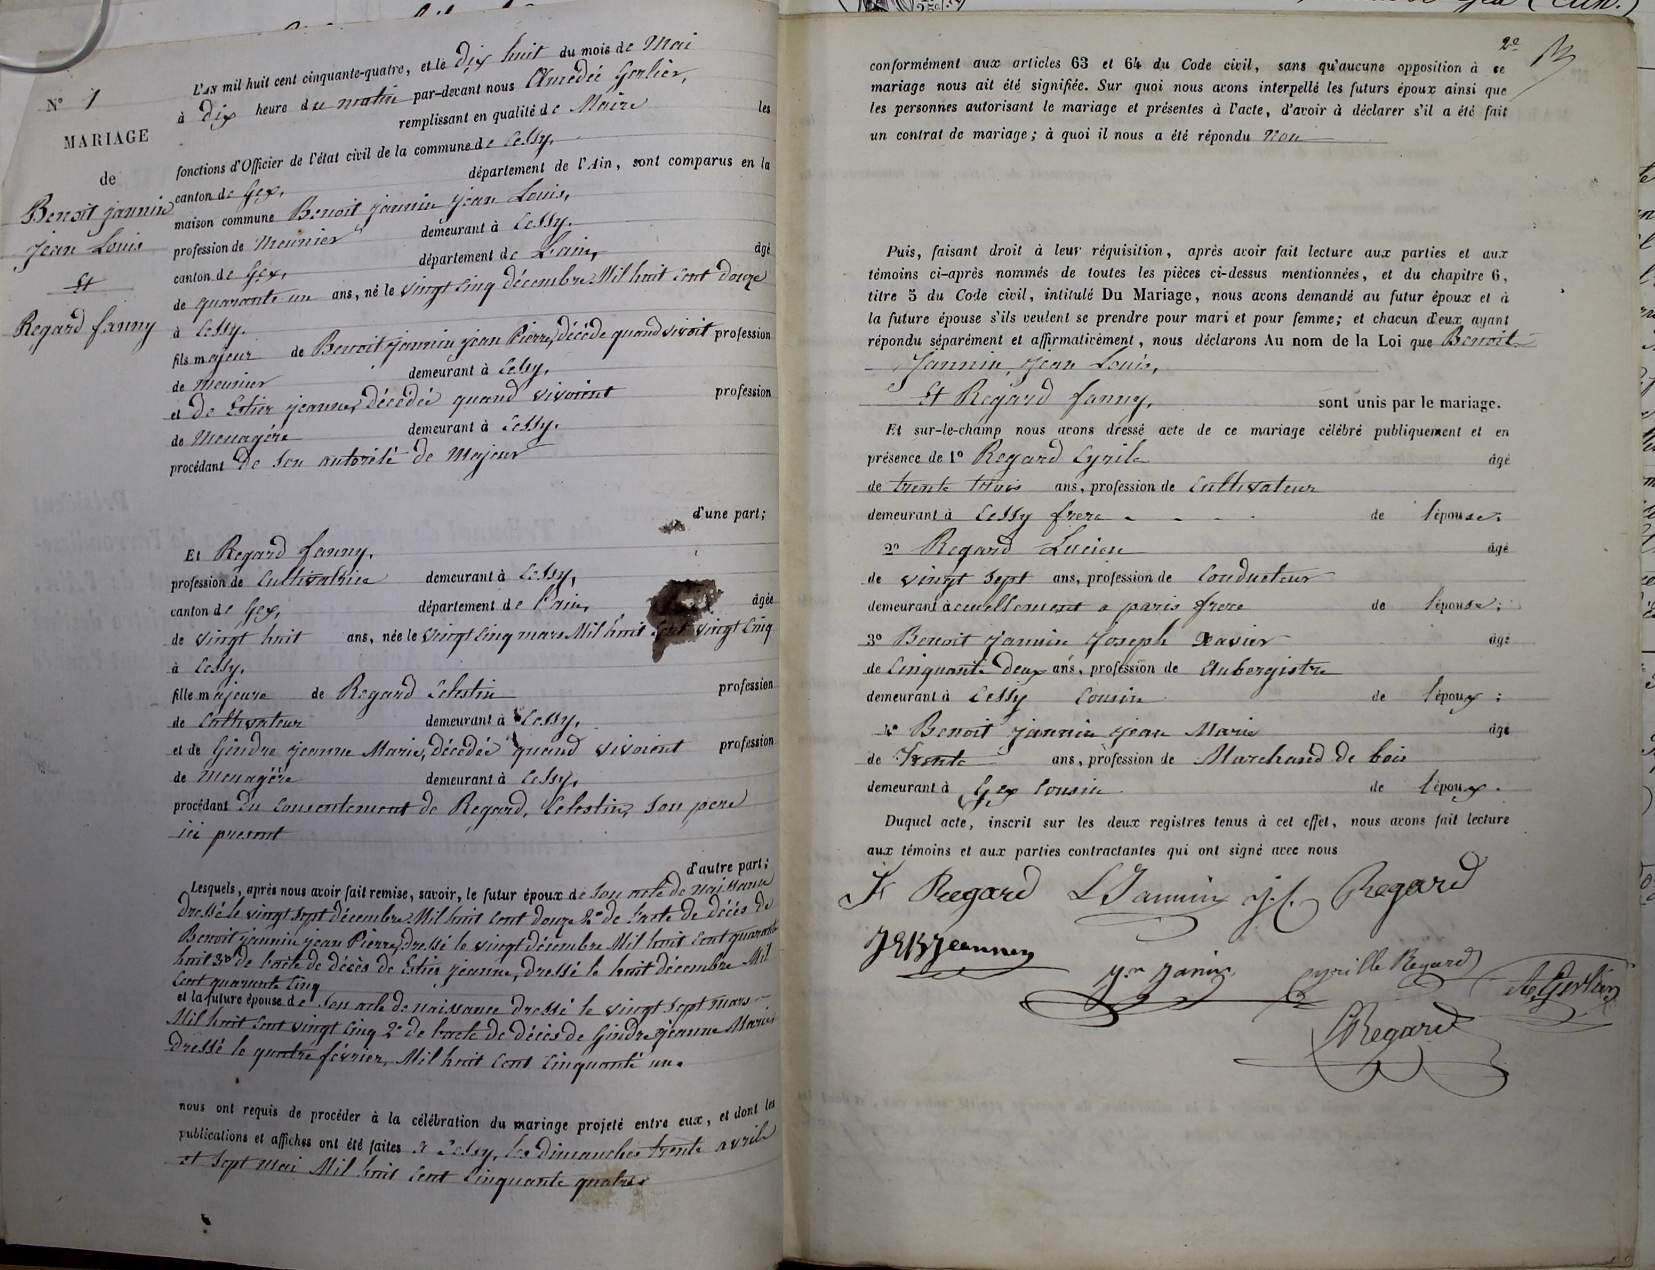 N° 1
MARIAGE
de
Benoit jannin
jean Louis
Et
Regard fanny
L'AN mil huit cent cinquante-quatre, et le dix huit du mois de Mai
à dix heure du matin par-devant nous Amédée Gerlier,
remplissant en qualité de Maire les
fonctions d'Officier de l'état civil de la commune de Cessy,
canton de Gex, département de l'Ain, sont comparus en la
maison commune Benoit jannin jean Louis,
profession de Meunier demeurant à Cessy.
canton de Gex, département de L'ain, âgé
de quarante un ans, né le vingt cinq décembre Mil huit cent douze
à Cessy.
fils majeur de Benoit jannin jean Pierre, décédé quand vivoit profession
de meunier demeurant à Cessy,
et de Estier jeanne, décédée quand vivoient profession
de Menagére demeurant à Cessy.
procédant de son autorité de Majeur
d'une part;
Et Regard fanny,
profession de Cultivatrice demeurant à Cessy,
canton de Gex, département de l'ain, âgée
de vingt huit ans, née le vingt cinq mars Mil huit cent vingt cinq
à Cessy.
fille majeure de Regard Celestin profession
de Cultivateur demeurant à Cessy.
et de Gindre jeanne Marie, décédée quand vivoient profession
de menagére demeurant à Cessy,
procédant du consentement de Regard, Celestin, son pere
ici present
d'autre part;
Lesquels, après nous avoir fait remise, savoir, le futur époux de son acte de naissance
dressé le vingt sept décembre Mil huit cent douze 2° de l'acte de décès de
Benoit jannin jean Pierre, dressé le vingt décembre Mil huit cent quarante
huit 3° de l'acte de décès de Estier jeanne, dressé le huit décembre Mil
cent quarante cinq
et la future épouse de son acte de naissance dressé le vingt sept mars
Mil huit cent vingt cinq 2° de l'acte de décès de Gindre jeanne Marie
dressé le quatre février, Mil huit cent cinquante un.
nous ont requis de procéder à la célébration du mariage projeté entre eux, et dont les
publications et affiches ont été faites à Cessy, les dimanches trente avrile
et sept mai Mil huit cent cinquante quatre
2e
conformément aux articles 63 et 64 du Code civil, sans qu'aucune opposition à ce
mariage nous ait été signifiée. Sur quoi nous avons interpellé les futurs époux ainsi que
les personnes autorisant le mariage et présentes à l'acte, d'avoir à déclarer s'il a été fait
un contrat de mariage; à quoi il nous a été répondu non
Puis, faisant droit à leur réquisition, après avoir fait lecture aux parties et aux
témoins ci-après nommés de toutes les pièces ci-dessus mentionnées, et du chapitre 6,
titre 5 du Code civil, intitulé Du Mariage, nous avons demandé au futur époux et à
la future épouse s'ils veulent se prendre pour mari et pour femme; et chacun d'eux ayant
répondu séparément et affirmativement, nous déclarons Au nom de la Loi que Benoit
Jannin, Jean Louis,
Et Regard fanny, sont unis par le mariage.
Et sur-le-champ nous avons dressé acte de ce mariage célébré publiquement et en
présence de 1° Regard Cyrile âgé
de trente trois ans, profession de Cultivateur
demeurant à Cessy frere de l'épouse;
2° Regard Lucien âgé
de vingt sept ans, profession de Conducteur
demeurant acuellement a paris frere de l'épouse;
3° Benoit Jannin Joseph Xavier âgé
de Cinquante deux ans, profession de Aubergiste
demeurant à Cessy Cousin de l'époux;
4° Benoit jannin jean Marie âgé
de Trente ans, profession de Marchand de bois
demeurant à Gex Cousin de l'époux.
Duquel acte, inscrit sur les deux registres tenus à cet effet, nous avons fait lecture
aux témoins et aux parties contractantes qui ont signé avec nous
Regard L Jannin Regard
Jn Janin cyrille Regard
Regard